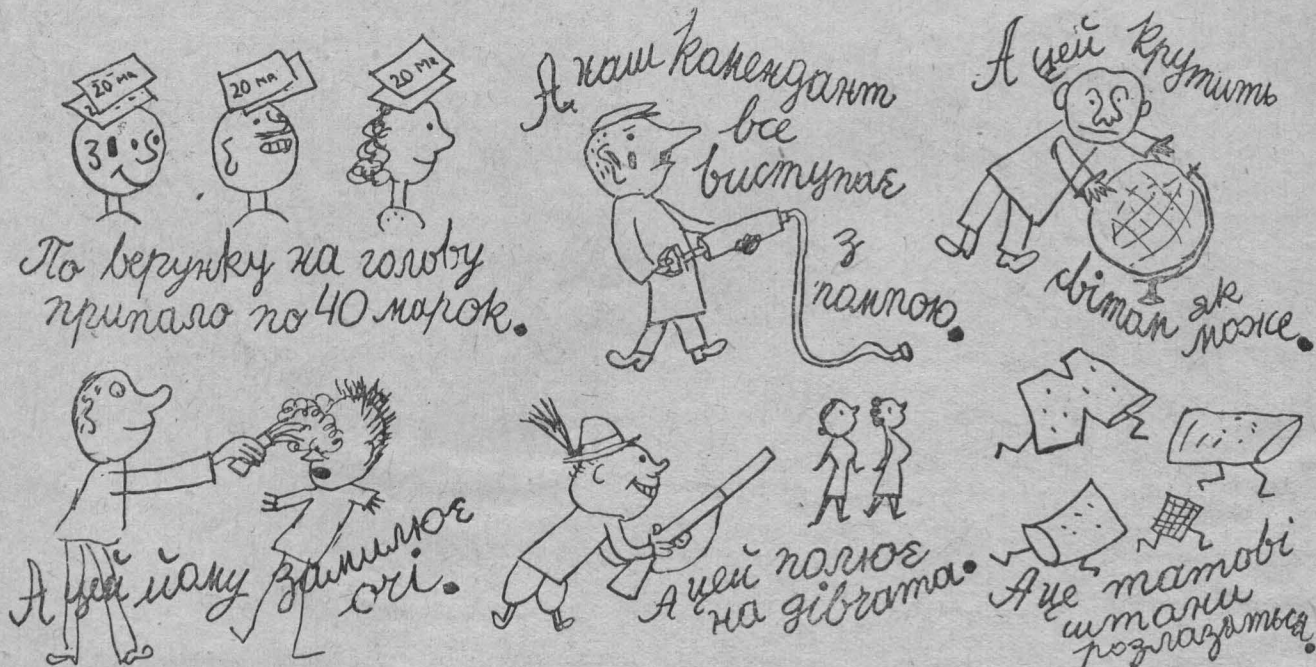 20 МА
20 МА
20 МА
По верунку на голову
припало по 40 марок.
А наш Комендант
все
виступає
з
помпою.
А цей крутить
світом як
може.
А цей йому замилює
очі.
А цей полює
на дівчата.
А це татові
штани
розлазяться.